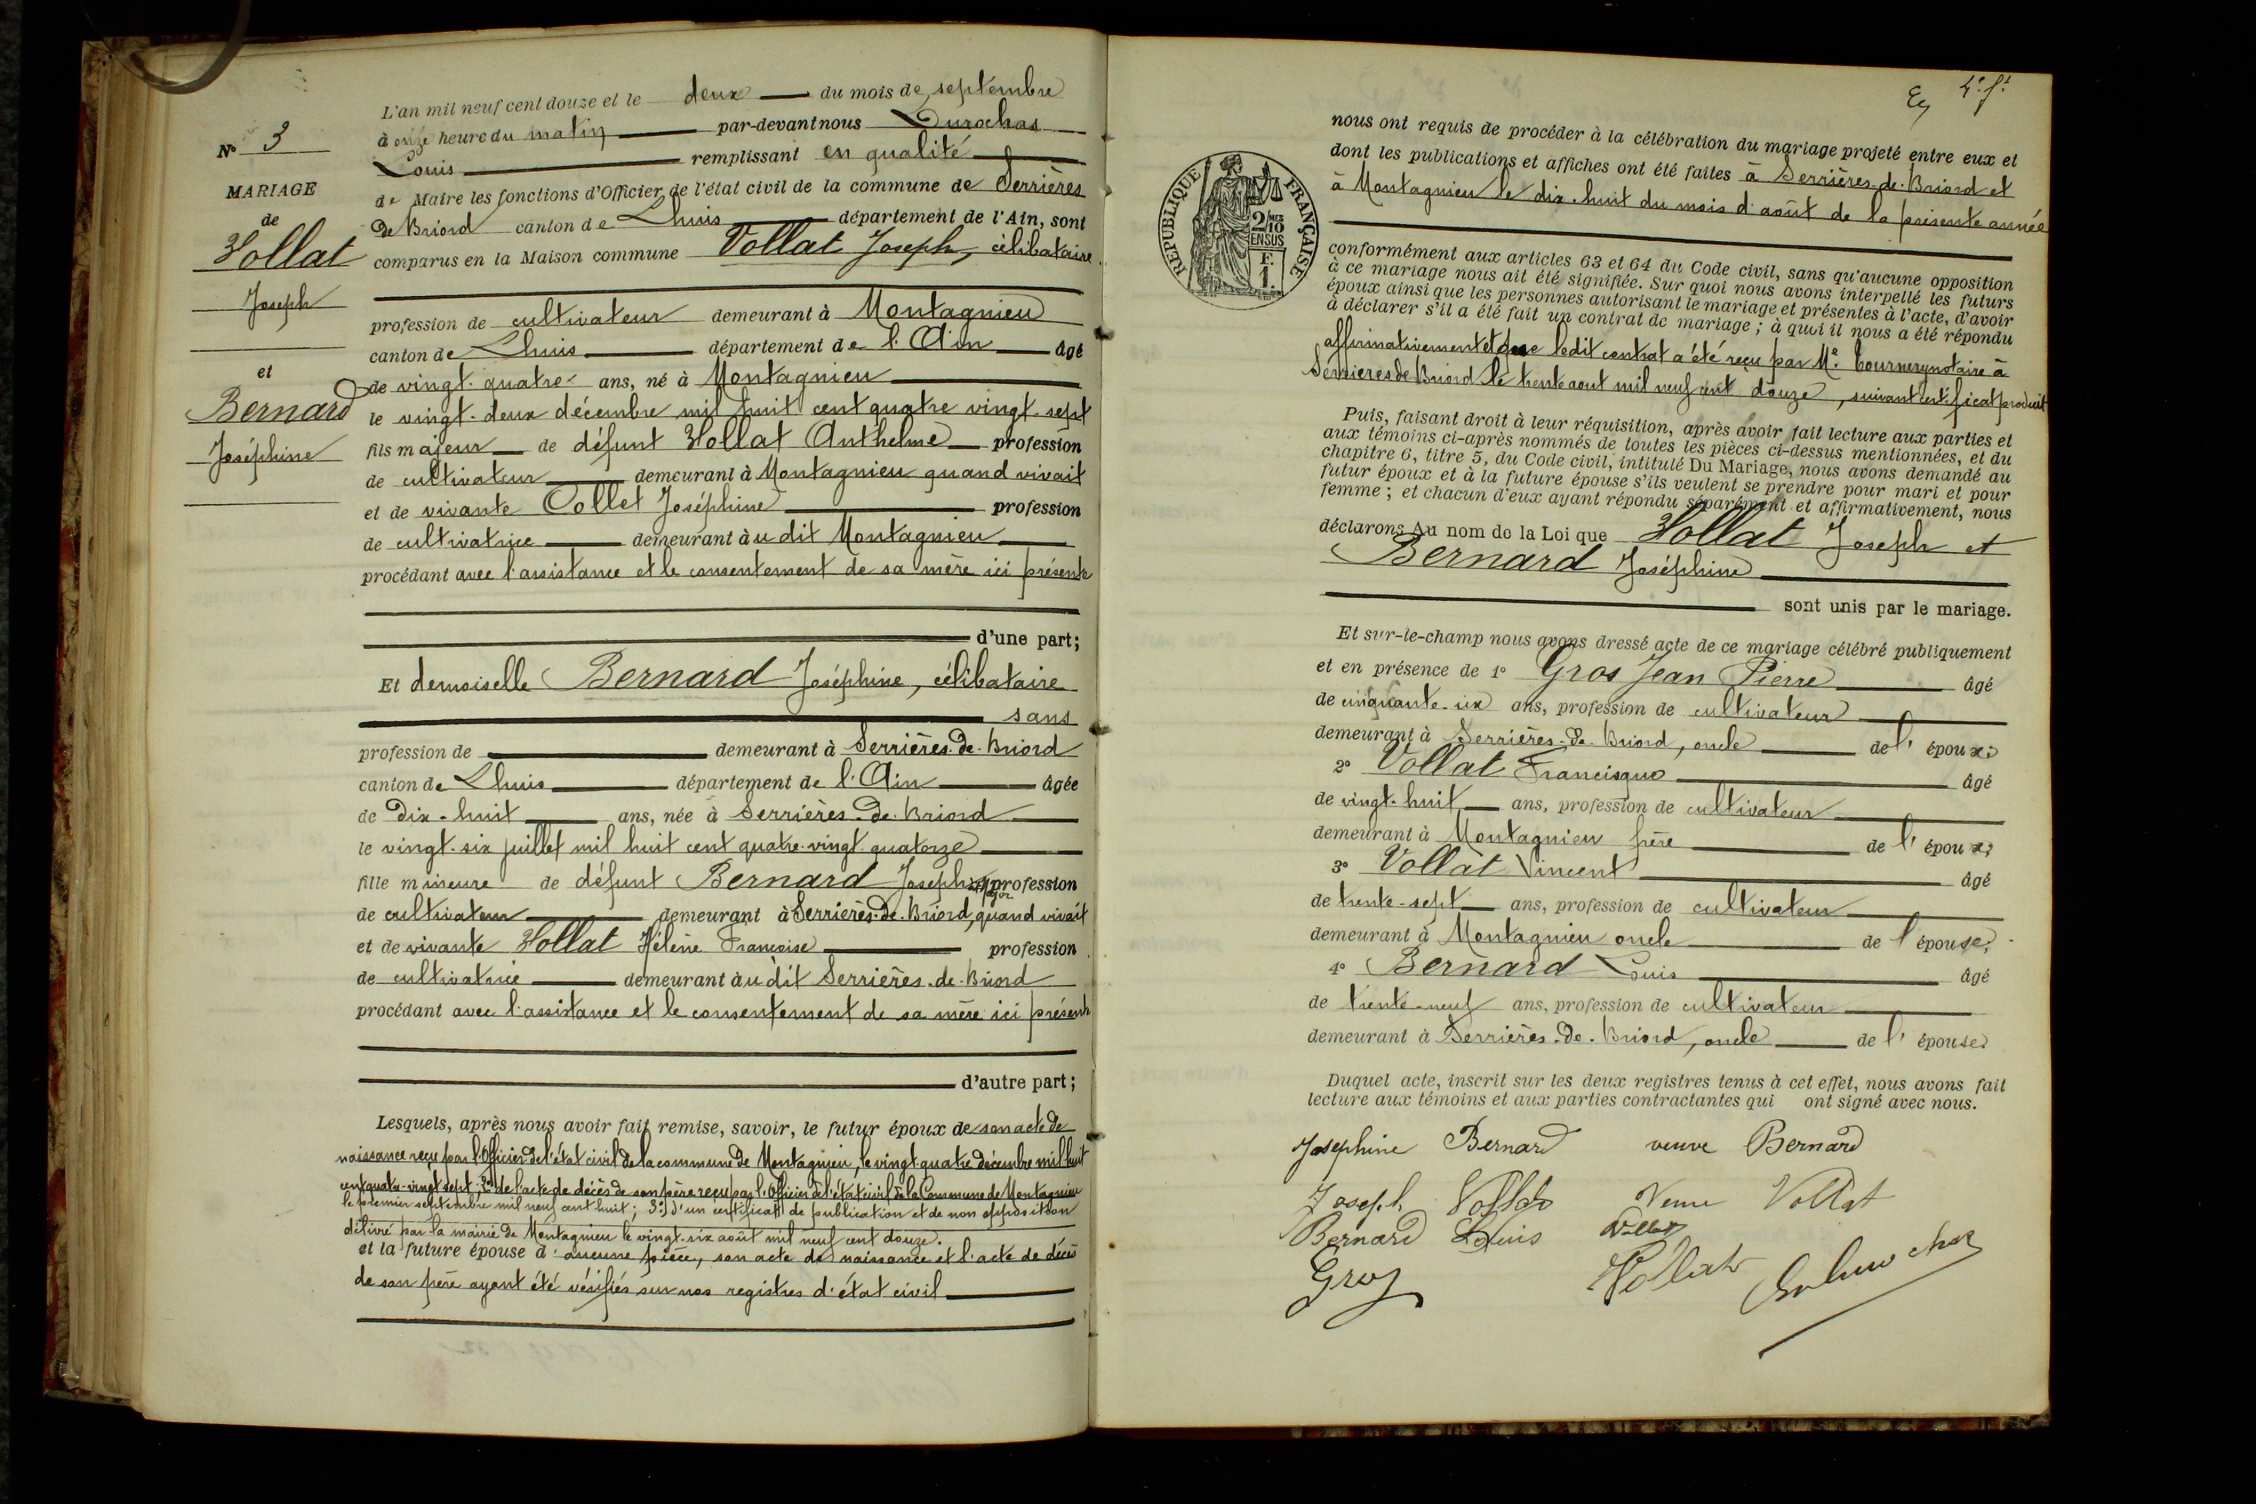 N° 3
MARIAGE
de
Vollat
Joseph
et
Bernard
Joséphine
L'an mil neuf cent douze et le deux du mois de septembre
à onze heure du matin par-devant nous Durochas
Louis remplissant en qualité
de Maire les fonctions d'Officier de l'état civil de la commune de Serrières
de Briord canton de Lhuis département de l'Ain, sont
comparus en la Maison commune Vollat Joseph, célibataire
profession de cultivateur demeurant à Montagnieu
canton de Lhuis département de l'Ain âgé
de vingt-quatre ans, né à Montagnieu
le vingt-deux décembre mil huit cent quatre vingt-sept
fils majeur de défunt Vollat Anthelme profession
de cultivateur demeurant à Montagnieu quand vivait
et de vivante Collet Joséphine profession
de cultivatrice demeurant àu dit Montagnieu
procédant avec l'assistance et le consentement de sa mère ici présente
d'une part;
Et demoiselle Bernard Joséphine, célibataire
sans
profession de demeurant à Serrières-de-Briord
canton de Lhuis département de l'Ain âgée
de Dix-huit ans, née à Serrières-de-Briord
le vingt-six juillet mil huit cent quatre-vingt quatorze
fille mineure de défunt Bernard Joseph profession
de cultivateur demeurant à Serrières-de-Briord, quand vivait
et de vivante Vollat Hélène Françoise profession
de cultivatrice demeurant àu dit Serrières-de-Briord
procédant avec l'assistance et le consentement de sa mère ici présente
d'autre part;
Lesquels, après nous avoir fait remise, savoir, le futur époux de son acte de
naissance reçu par l'Officier de l'état civil de la commune de Montagnieu, le vingt-quatre décembre mil huit
cent quatre-vingt sept; 2° de l'acte de décès de son père reçu par l'Officier de l'état civil de la Commune de Montagnieu
le premier septembre mil neuf cent huit; 3° d'un certificat de publication et de non opposition
délivré par la mairie de Montagnieu le vingt-six août mil neuf cent douze.
et la future épouse d'aucune pièce, son acte de naissance et l'acte de décès
de son père ayant été vérifiés sur nos registres d'état civil
RÉPUBLIQUE FRANÇAISE
2/10
EN SUS
F.
1.
nous ont requis de procéder à la célébration du mariage projeté entre eux et
dont les publications et affiches ont été faites à Serrières-de-Briord et
à Montagnieu le dix-huit du mois d'août de la présente année
conformément aux articles 63 et 64 du Code civil, sans qu'aucune opposition
à ce mariage nous ait été signifiée. Sur quoi nous avons interpellé les futurs
époux ainsi que les personnes autorisant le mariage et présentes à l'acte, d'avoir
à déclarer s'il a été fait un contrat de mariage; à quoi il nous a été répondu
affirmativement et que ledit contrat a été reçu par Me. notaire à
Serrières de Briord le trente aout mil neuf cent douze, suivant certificat produit
Puis, faisant droit à leur réquisition, après avoir fait lecture aux parties et
aux témoins ci-après nommés de toutes les pièces ci-dessus mentionnées, et du
chapitre 6, titre 5, du Code civil, intitulé Du Mariage, nous avons demandé au
futur époux et à la future épouse s'ils veulent se prendre pour mari et pour
femme; et chacun d'eux ayant répondu séparément et affirmativement, nous
déclarons Au nom de la Loi que Vollat Joseph et
Bernard Joséphine
sont unis par le mariage.
Et sur-le-champ nous avons dressé acte de ce mariage célébré publiquement
et en présence de 1° Gros Jean Pierre âgé
de cinquante-six ans, profession de cultivateur
demeurant à Serrières-de-Briord, oncle de l'époux;
2° Vollat Francisque âgé
de vingt-huit ans, profession de cultivateur
demeurant à Montagnieu frère de l'époux;
3° Vollat Vincent âgé
de trente-sept ans, profession de cultivateur
demeurant à Montagnieu oncle de l'épouse;
4° Bernard Louis âgé
de trente-neuf ans, profession de cultivateur
demeurant à Serrières-de-Briord, oncle de l'épouse
Duquel acte, inscrit sur les deux registres tenus à cet effet, nous avons fait
lecture aux témoins et aux parties contractantes qui ont signé avec nous.
Josephine Bernard veuve Bernard
Joseph Vollat Veuve Vollat
Bernard Louis Vollat
Gros Vollat